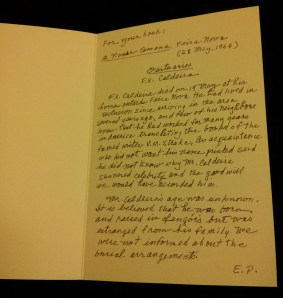 For your book:
A Nossa Semana Feira Nova
(28 May, 1964)
Obituaries
F.X. Caldeira
F.X. Caldeira died on 19 May at his
home outside Feira Nova. He had lived in
seclusion since arriving in the area
several years ago, and few of his neighbors
knew that he had worked for many years
in America translating the books of the
famed writer V.M. Straka. An acquaintance
who did not want his name printed said
he did not know why Mr. Caldeira
shunned celebrity and the good will
we would have accorded him.
Mr. Caldeira's age was unknown.
It is believed that he was born
and raised in Lençóis but was
estranged from his family. We
were not informed about the
burial arrangements.
E.P.